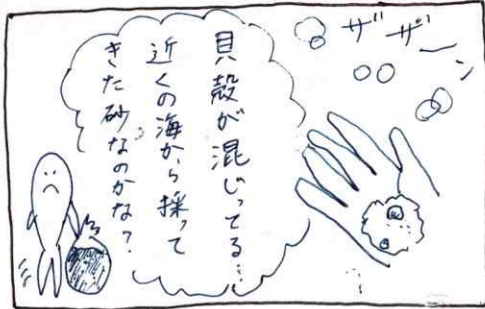 ザザーン
貝殻が混じってる…
近くの海から採って
きた砂なのかな?